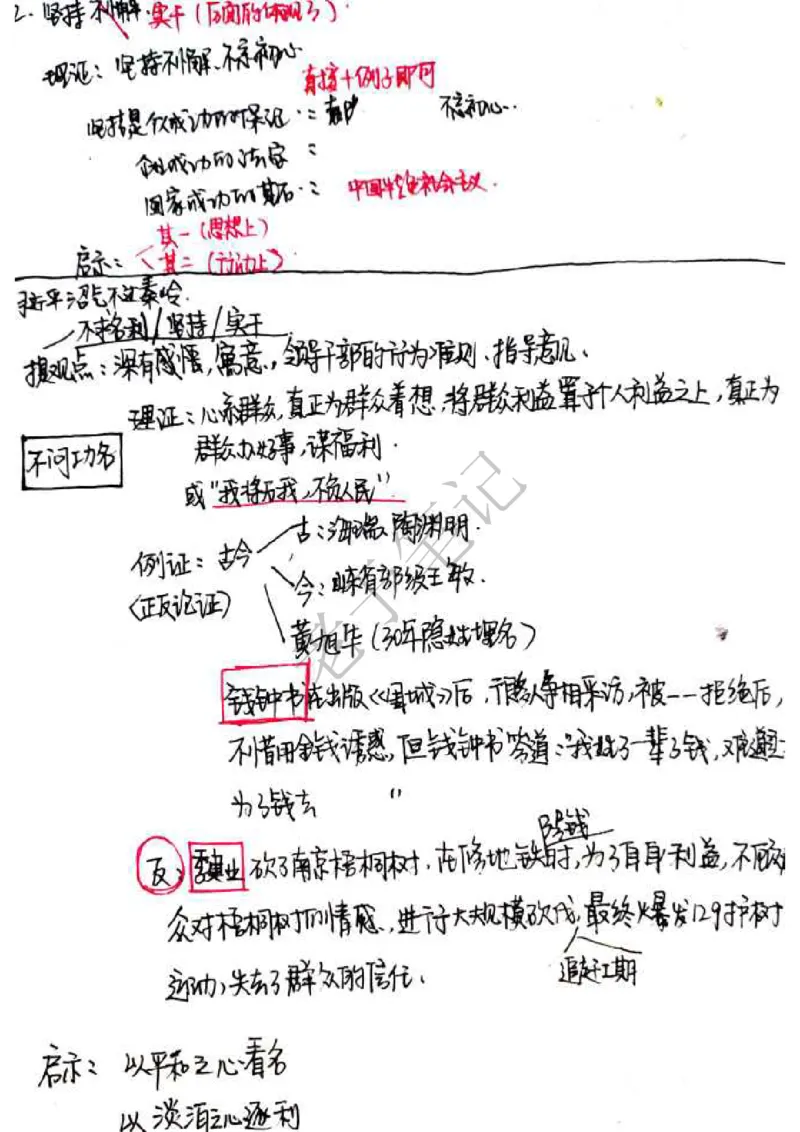 2. 坚持不懈. 实干（反面的体现了）
理证：坚持不懈、不忘初心
直接+例子即可
坚持是个人成功的保证：不忘初心..
企业成功的法宝：
国家成功的基石：中国特色社会主义.
其一（思想上）
启示：其二（行动上）
不求名利/坚持/实干
提观点：深有感悟，寓意，领导干部的行为准则、指导意见、
理证：心系群众，真正为群众着想，将群众利益置于个人利益之上，真正为
不问功名
群众办好事，谋福利.
或"我将无我，不负人民"
例证：古今 古：海瑞、陶渊明.
〈正反论证〉
今：部级
黄旭华（30年隐姓埋名）
钱钟书在出版《围城》后，争相采访，被一一拒绝后，
不惜用金钱诱惑，但钱钟书答道："我姓了一辈子钱，难道
为了钱去 "
反：砍了南京梧桐树，在修地铁时，为了自身利益，不顾
众对梧桐树的情感，进行大规模砍伐，最终爆发129护树
追赶工期
运动，失去了群众的信任、
启示：以平和之心看名
以淡泊之心逐利
老丁笔记